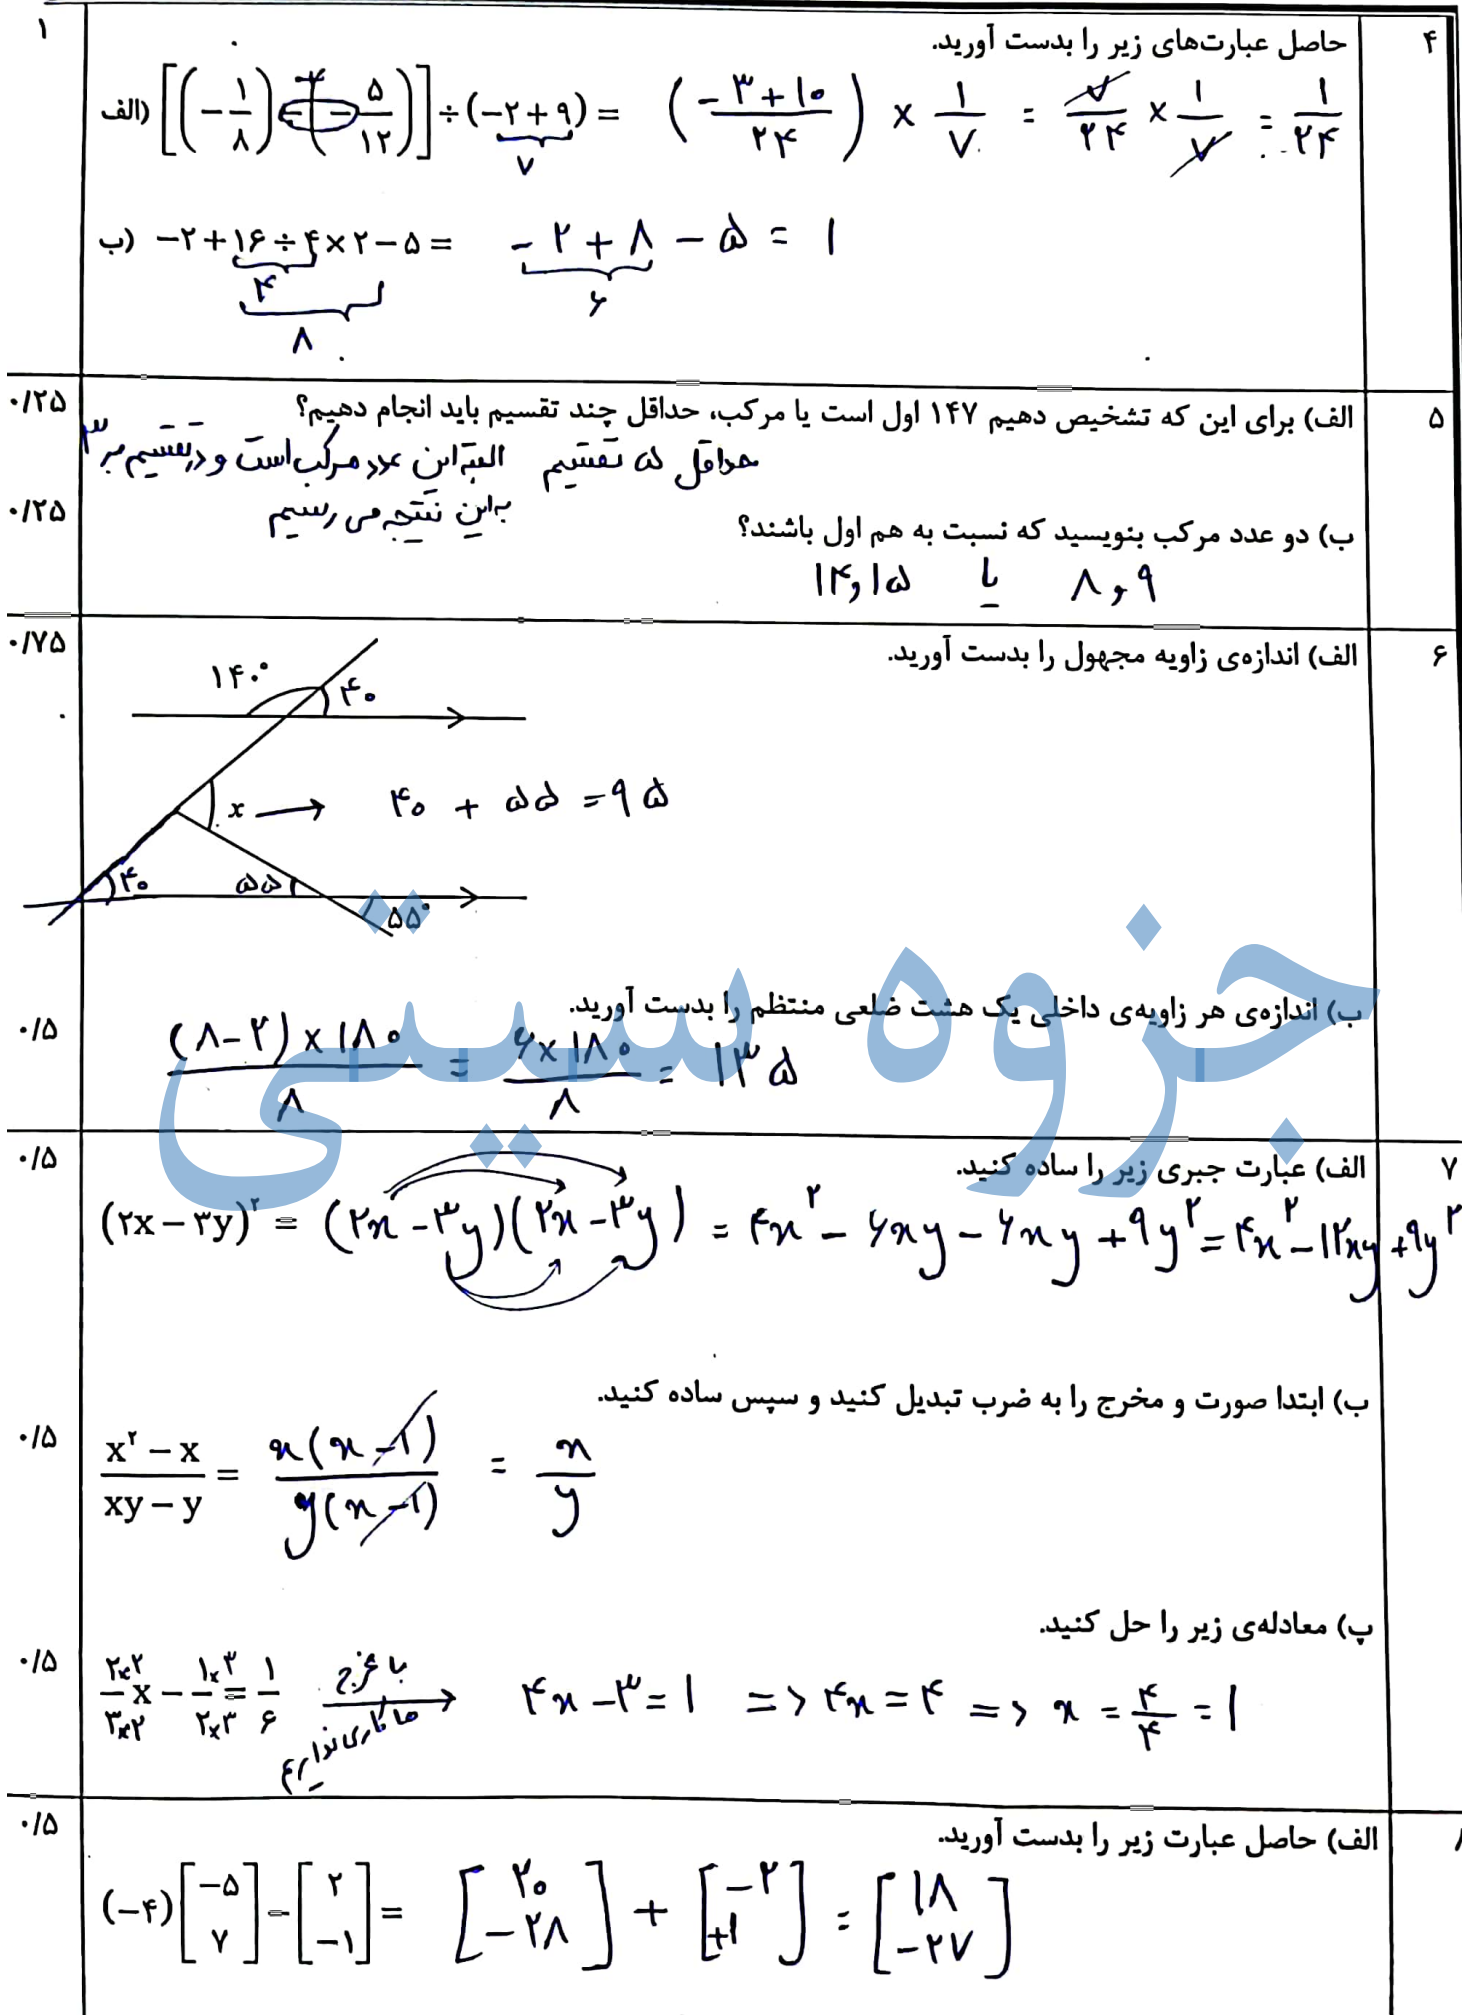 ۴ حاصل عبارت‌های زیر را بدست آورید. ۱
الف) [(-۱/۸) - (-۵/۱۲)] ÷ (-۲+۹) = ((-۳+۱۰)/۲۴) × ۱/۷ = ۷/۲۴ × ۱/۷ = ۱/۲۴
+
۷
ب) -۲+۱۶÷۴×۲-۵ = -۲+۸-۵ = ۱
۴ ۶
۸
۵ الف) برای این که تشخیص دهیم ۱۴۷ اول است یا مرکب، حداقل چند تقسیم باید انجام دهیم؟ ۰/۲۵
حداقل ۵ تقسیم البته این عدد مرکب است و در تقسیم بر ۳
به این نتیجه می رسیم
ب) دو عدد مرکب بنویسید که نسبت به هم اول باشند؟ ۰/۲۵
۸ و ۹ یا ۱۴ و ۱۵
۶ الف) اندازه‌ی زاویه مجهول را بدست آورید. ۰/۷۵
۱۴۰° ۴۰
x → ۴۰ + ۵۵ = ۹۵
۴۰ ۵۵
۵۵°
جزوه سیتی
ب) اندازه‌ی هر زاویه‌ی داخلی یک هشت ضلعی منتظم را بدست آورید. ۰/۵
(۸-۲)×۱۸۰/۸ = ۶×۱۸۰/۸ = ۱۳۵
۷ الف) عبارت جبری زیر را ساده کنید. ۰/۵
(۲x-۳y)^۲ = (۲x-۳y)(۲x-۳y) = ۴x^۲-۶xy-۶xy+۹y^۲ = ۴x^۲-۱۲xy+۹y^۲
ب) ابتدا صورت و مخرج را به ضرب تبدیل کنید و سپس ساده کنید. ۰/۵
(x^۲-x)/(xy-y) = x(x-۱)/y(x-۱) = x/y
پ) معادله‌ی زیر را حل کنید. ۰/۵
(۲×۲)/(۳×۲) x - (۱×۳)/(۲×۳) = ۱/۶ با مخرج ها کاری نداریم → ۴x-۳=۱ => ۴x=۴ => x=۴/۴=۱
۸ الف) حاصل عبارت زیر را بدست آورید. ۰/۵
(-۴)[-۵ ۷] - [۲ -۱] = [۲۰ -۲۸] + [-۲ +۱] = [۱۸ -۲۷]